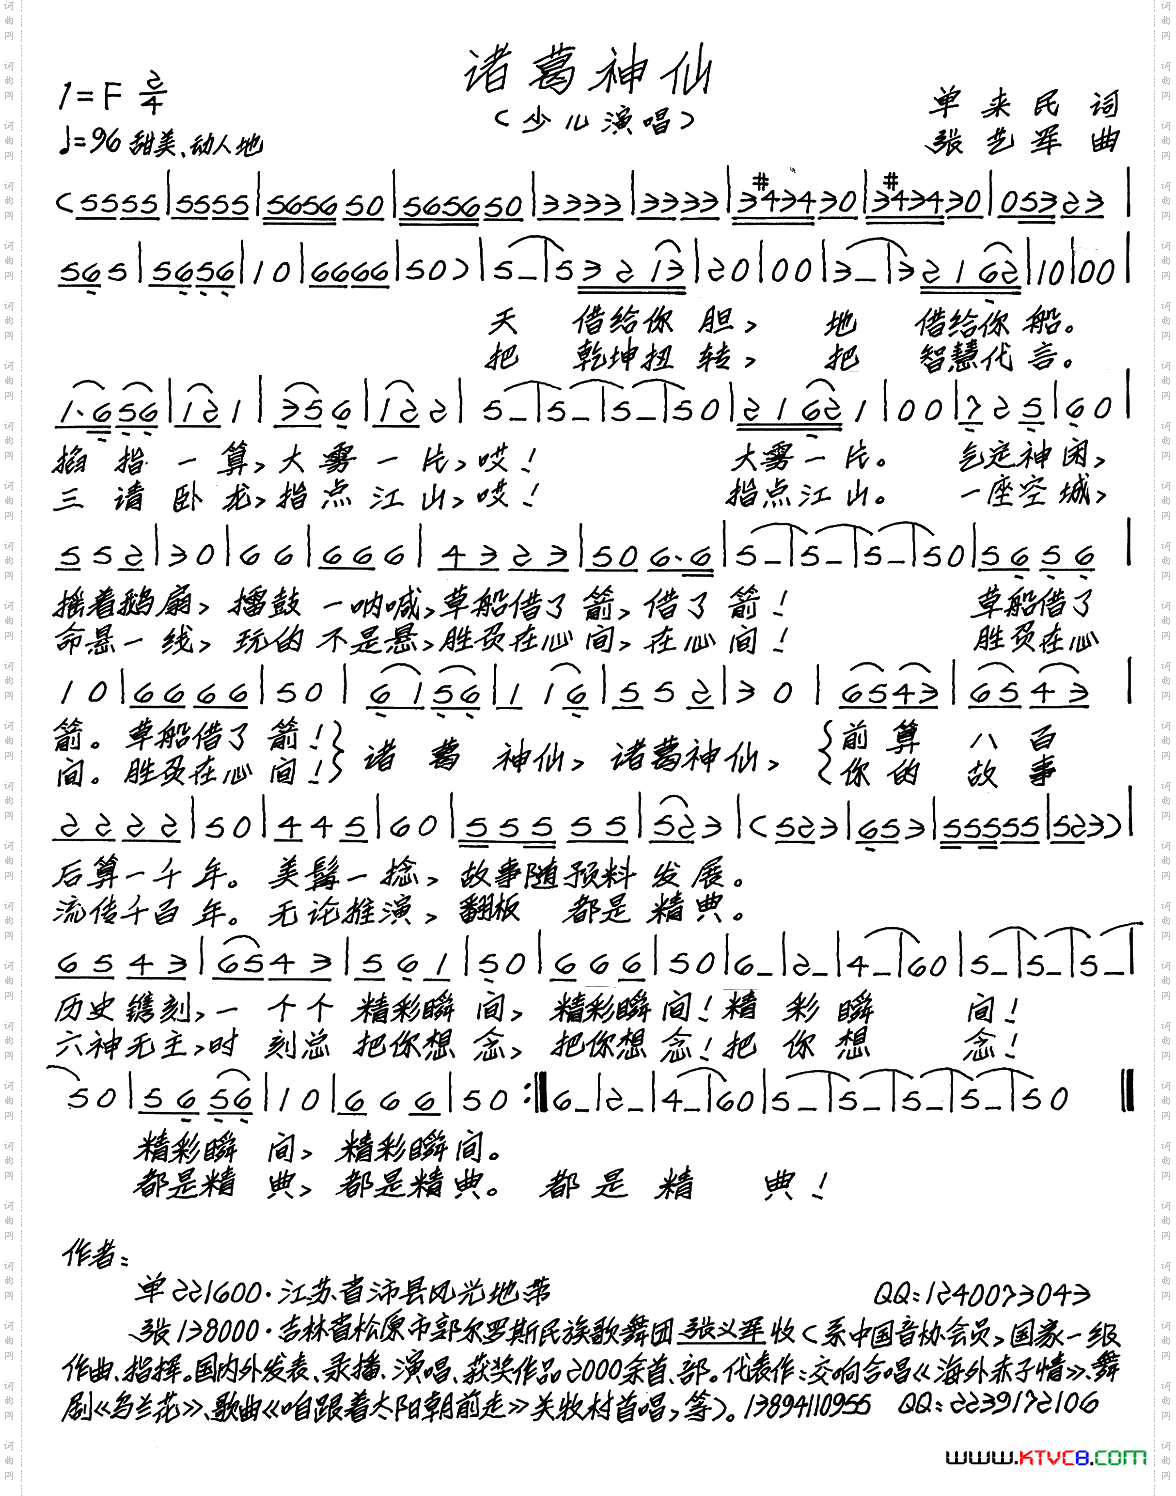 诸葛神仙
(少儿演唱)
1=F 2/4
♩=96 甜美、动人地
单来民 词
张艺军 曲
(5555|5555|5656 50|5656 50|3333|3333|3#43430|3#43430|0533 23|
565|5656|10|6666|50)|5_|53 213|20|00|3_|32162|10|00|
天 借给你 胆, 地 借给你 船。
把 乾坤扭 转, 把 智慧代 言。
1·656|121|356|122|5_|5_|5_|50|21621|00|725|60|
掐指一算,大雾一片,哎! 大雾一片。 气定神闲,
三请卧龙,指点江山,哎! 指点江山。 一座空城,
552|30|66|666|4323|506·6|5_|5_|5_|50|5656|
摇着鹅扇, 擂鼓一呐喊,草船借了箭,借了箭! 草船借了
命悬一线, 玩的不是悬,胜负在心间,在心间! 胜负在心
10|6666|50|6156|116|552|30|6543|6543|
箭。草船借了箭!}诸葛神仙,诸葛神仙,{前算八百
间。胜负在心间!} {你的故事
2222|50|445|60|55555|523|(523|653|55555|523)|
后算一千年。美髯一捻,故事随预料发展。
流传千百年。无论推演,翻板 都是精典。
6543|6543|561|50|666|50|6_|2_|4_|60|5_|5_|5_|
历史镌刻,一个个精彩瞬间,精彩瞬间!精彩瞬 间!
六神无主,时刻总把你想念,把你想念!把你想 念!
50|5656|10|666|50:‖6_|2_|4_|60|5_|5_|5_|5_|50‖
精彩瞬间,精彩瞬间。
都是精典,都是精典。都是精 典!
作者:
单221600·江苏省沛县风光地带 QQ:1240073043
张138000·吉林省松原市郭尔罗斯民族歌舞团张义军收(系中国音协会员,国家一级
作曲、指挥。国内外发表、录播、演唱、获奖作品2000余首、部。代表作:交响合唱《海外赤子情》、舞
剧《乌兰花》、歌曲《咱跟着太阳朝前走》关牧村首唱,等)。13894110955 QQ:2239172106
www.KTVC8.com